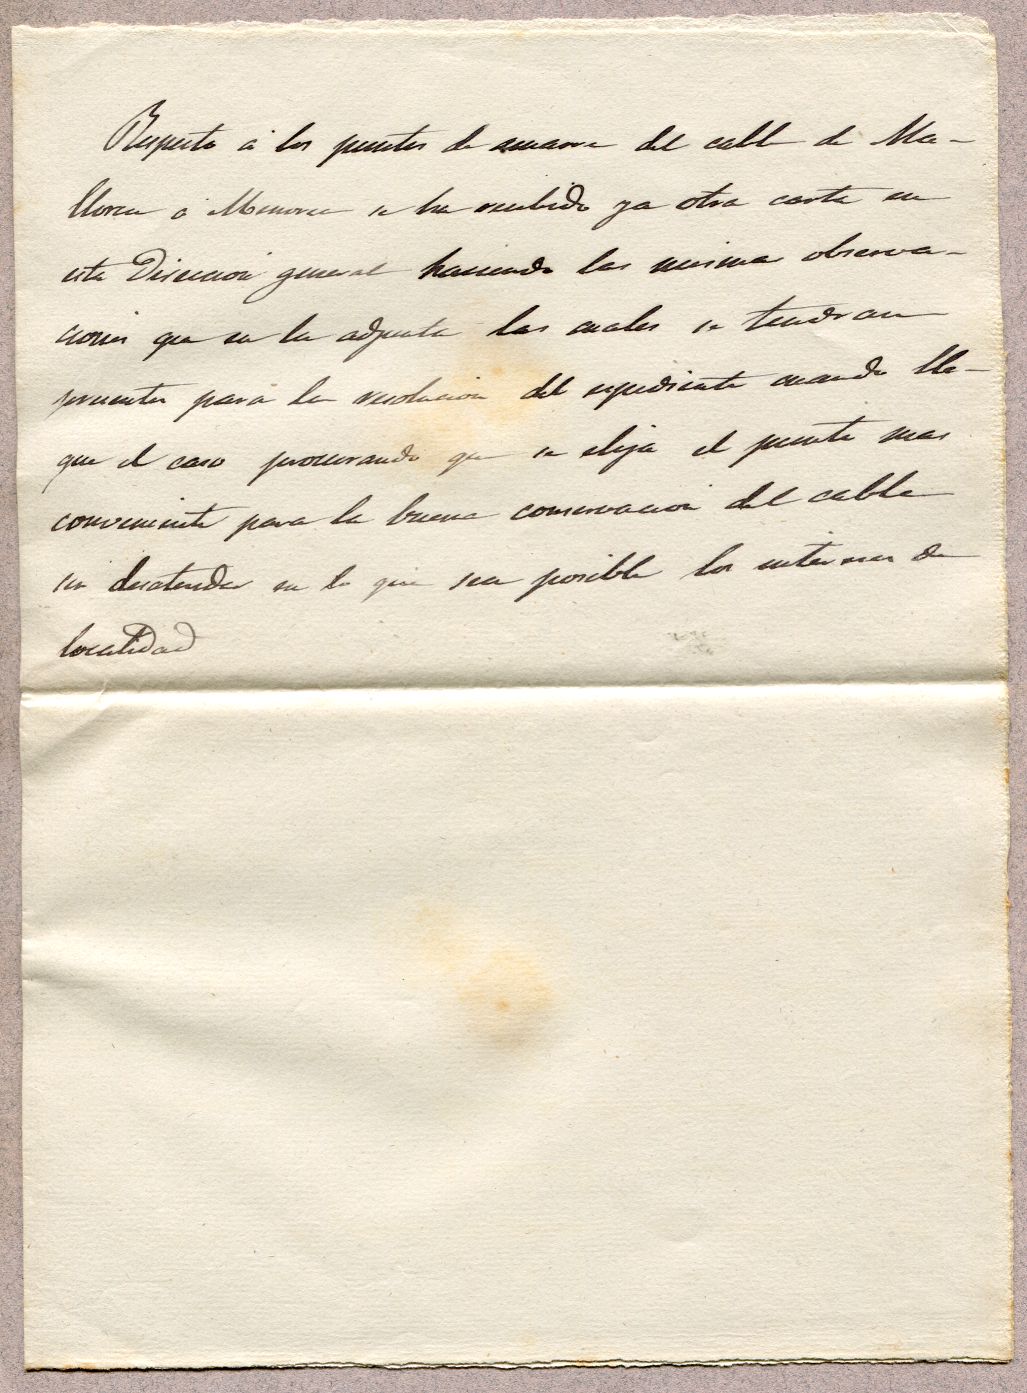 Respecto á los puntos de amarre del cable de Ma-
llorca á Menorca se ha recibido ya otra carta en
esta Direccion general haciendo las misma observa-
ciones que en la adjunta las cuales se tendran
presentes para la resolucion del expediente cuando lle-
gue el caso procurando que se elija el punto mas
conveniente para la buena conservacion del cable
sin desatender en lo que sea posible los intereses de
localidad